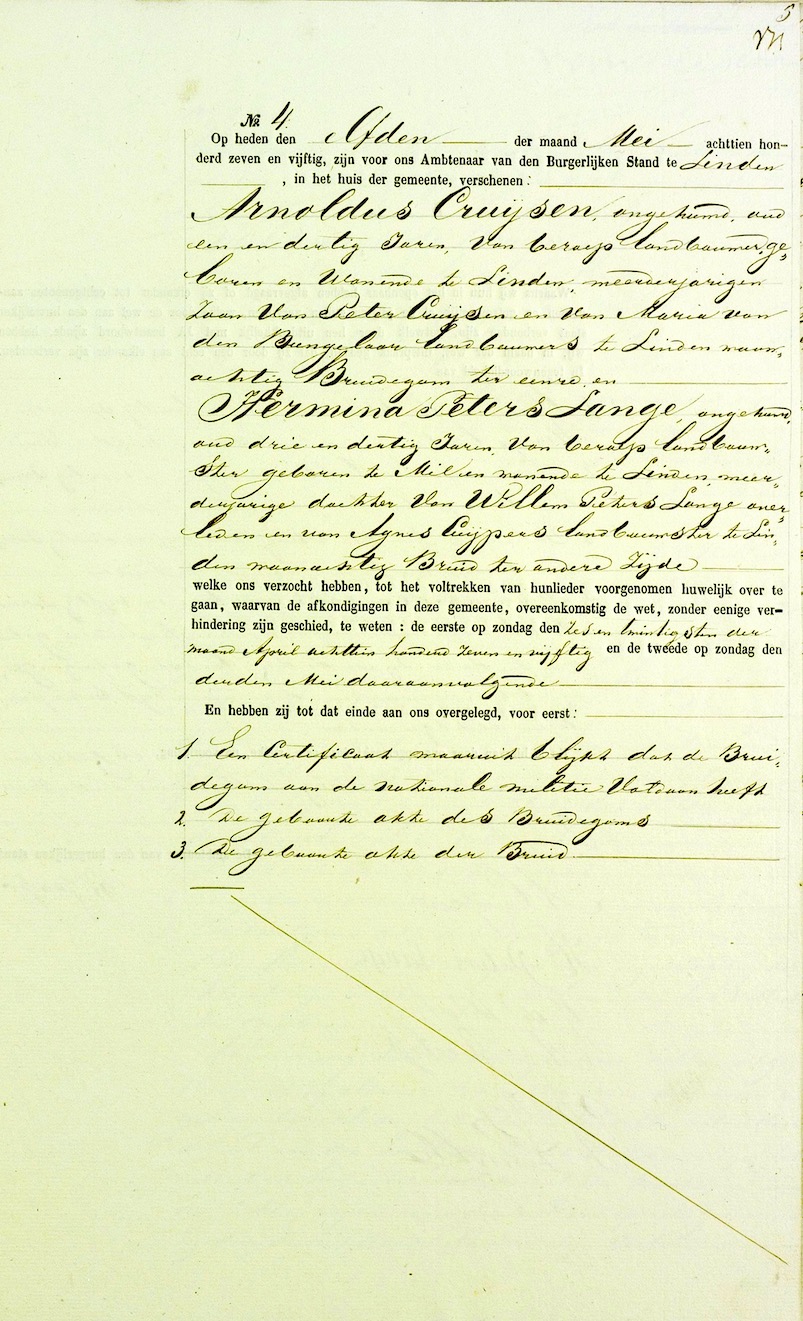 5
N.º 4.
Op heden den Afden der maand Mei achttien hon-
derd zeven en vijftig, zijn voor ons Ambtenaar van den Burgerlijken Stand te Linden
, in het huis der gemeente, verschenen:
Arnoldus Cruijsen, ongehuwd, oud
een en dertig Jaren, Van beroep landbouwer, ge-
boren en Wonende te Linden, meerderjarigen
Zoon Van Peter Cruijsen en Van Maria van
den Bungelaar landbouwers te Linden woon-
achtig Bruidegom ter eenre en
Hermina Peters Lange, ongehuwd,
oud drie en dertig Jaren, Van beroep landbouw-
ster geboren te Mill en wonende te Linden, meer-
derjarige dochter Van Willem Peters Lange over-
leden en van Agnes Cuijpers landbouwster te Lin-
den woonachtig Bruid ter andere Zijde
welke ons verzocht hebben, tot het voltrekken van hunlieder voorgenomen huwelijk over te
gaan, waarvan de afkondigingen in deze gemeente, overeenkomstig de wet, zonder eenige ver-
hindering zijn geschied, te weten: de eerste op zondag den Zes en twintigsten der
maand April achttien honderd Zeven en vijftig en de tweede op zondag den
derden Mei daaraanvolgende
En hebben zij tot dat einde aan ons overgelegd, voor eerst:
1. Een Certificaat waaruit blijkt dat de Brui-
degom aan de nationale militie Voldaan heeft
2. De geboorte akte des Bruidegoms
3. De geboorte akte der Bruid